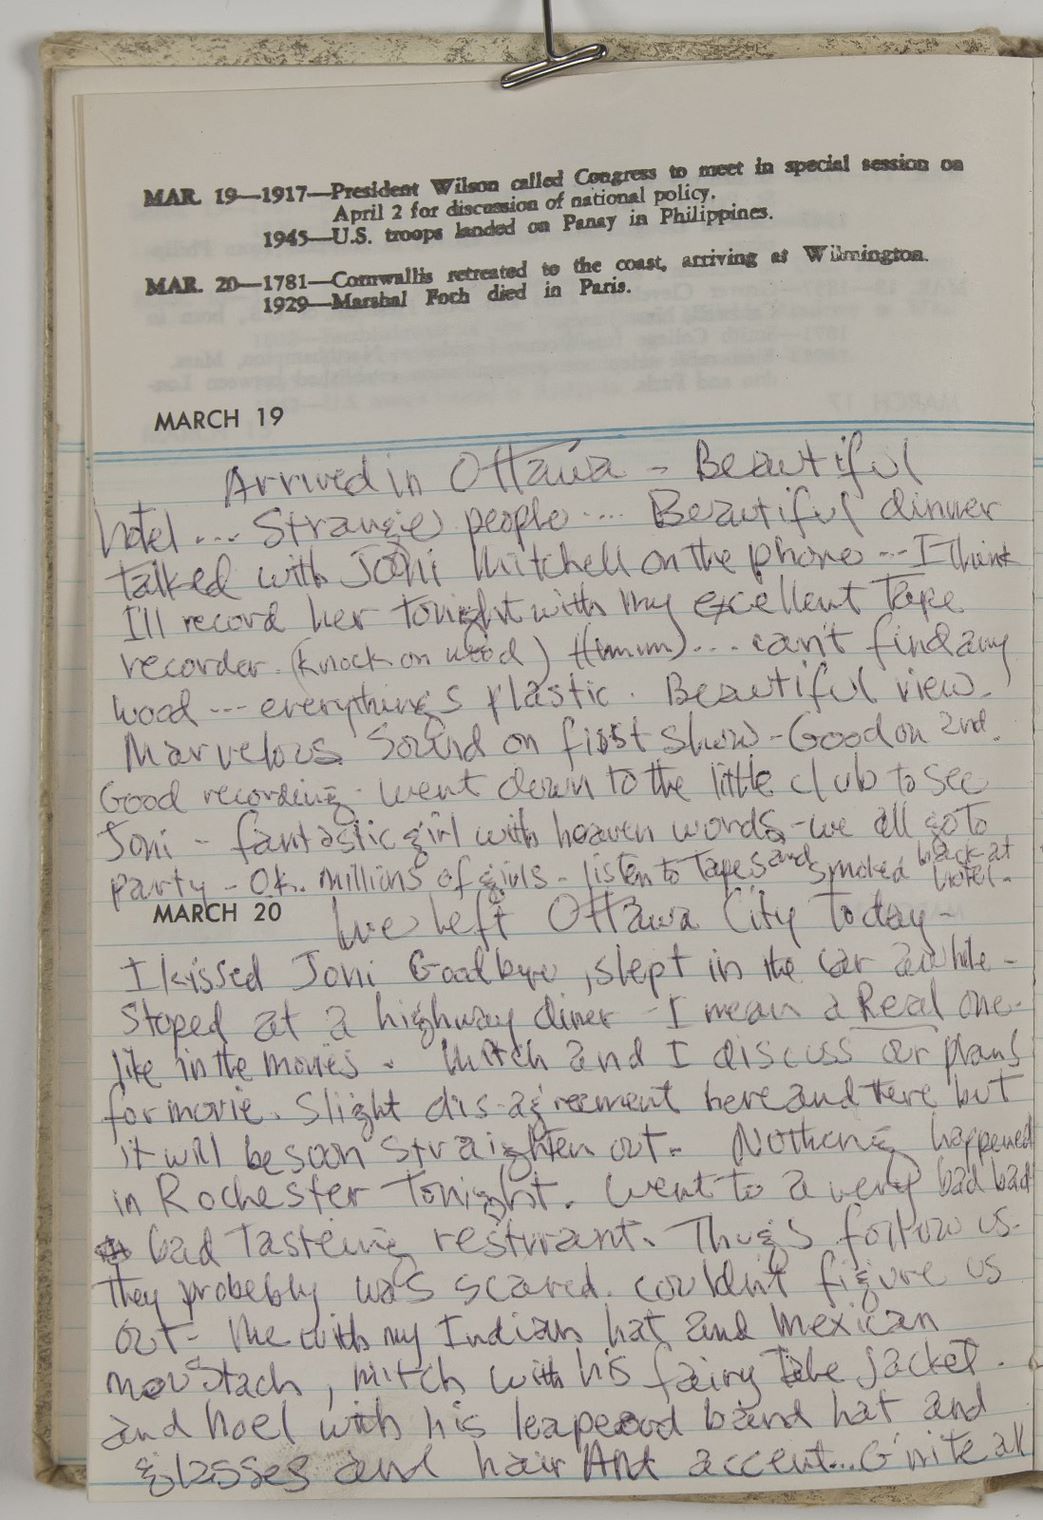 MAR. 19—1917—President Wilson called Congress to meet in special session on
April 2 for discussion of national policy.
1945—U.S. troops landed on Panay in Philippines.
MAR. 20—1781—Cornwallis retreated to the coast, arriving at Wilmington.
1929—Marshal Foch died in Paris.
MARCH 19
Arrived in Ottawa - Beautiful
hotel ... Strange people .... Beautiful dinner
talked with Joni Mitchell on the phone --- I think
I'll record her tonight with my excellent Tape
recorder. (knock on wood) Hmmm)... can't find any
wood --- everything's plastic. Beautiful view.
Marvelous Sound on first show - Good on 2nd.
Good recording - went down to the little club to see
Joni - fantastic girl with heaven words - we all go to
party - O.k. millions of girls - listen to Tapes and smoked back at hotel -
MARCH 20
We Left Ottawa City Today -
I kissed Joni Goodbye, slept in the car awhile -
Stoped at a highway diner - I mean a Real one -
like in the movies - Mitch and I discuss our plans
for movie. Slight dis-agreement here and there but
it will be soon straighten out - Nothing happened
in Rochester Tonight. Went to a very bad bad
bad Tasteing resturant. Thugs follow us.
They probebly was scared. couldn't figure us
out - Me with my Indian hat and Mexican
moustach, mitch with his fairy Tale jacket.
and Noel with his leapeod band hat and
glasses and hair And accent... G'nite all